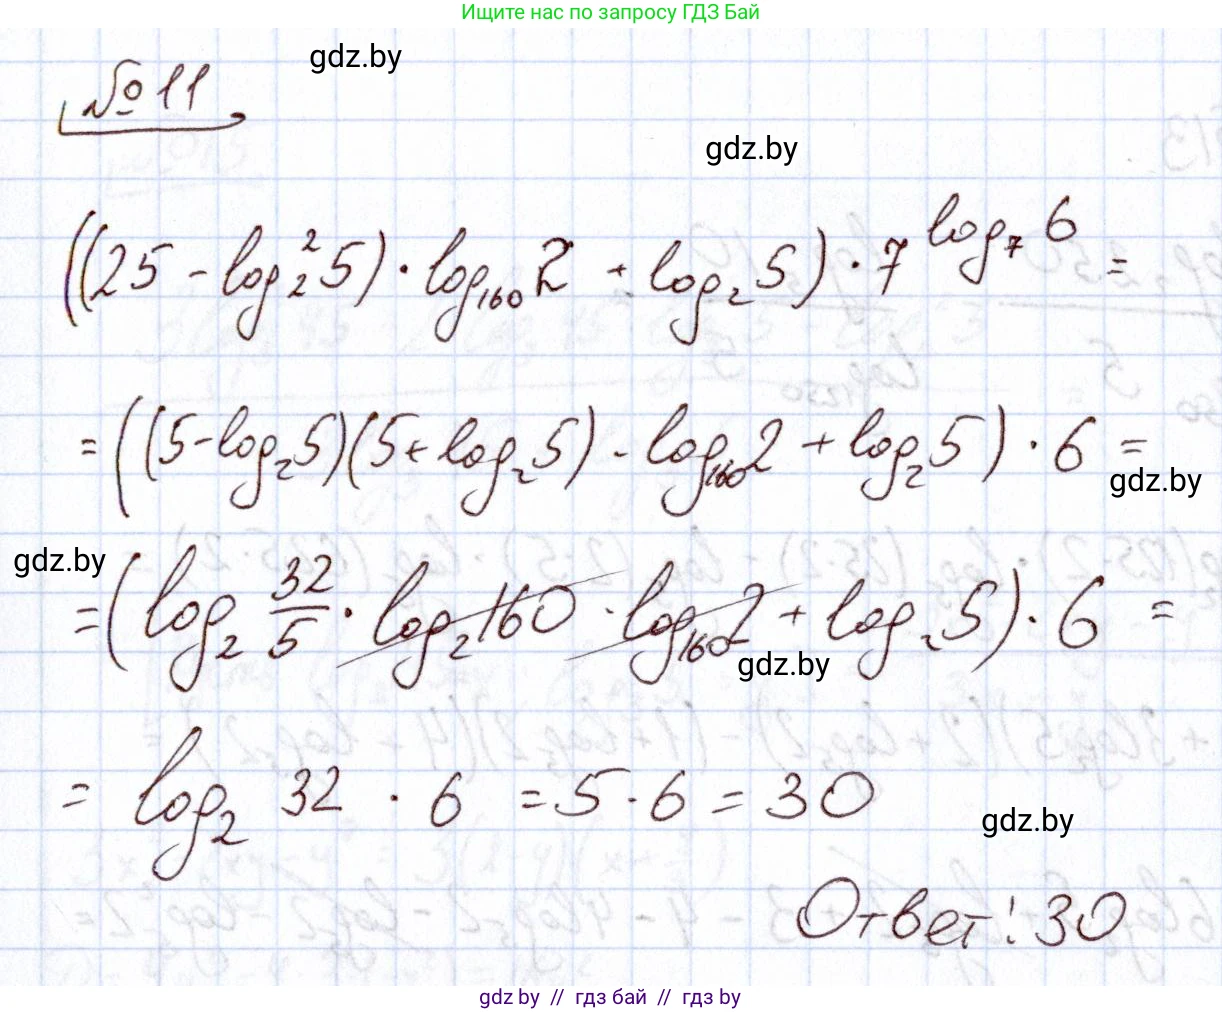 Ищите нас по запросу ГДЗ Бай
gdz.by
№ 11
gdz.by
((25 - log₂² 5) · log₁₆₀ 2 + log₂ 5) · 7^(log₇ 6) =
= ((5 - log₂ 5)(5 + log₂ 5) · log₁₆₀ 2 + log₂ 5) · 6 =
gdz.by
gdz.by
= (log₂ 32/5 · log₂ 160 · log₁₆₀ 2 + log₂ 5) · 6 =
gdz.by
= log₂ 32 · 6 = 5 · 6 = 30
gdz.by
Ответ: 30
gdz.by // гдз бай // гдз by